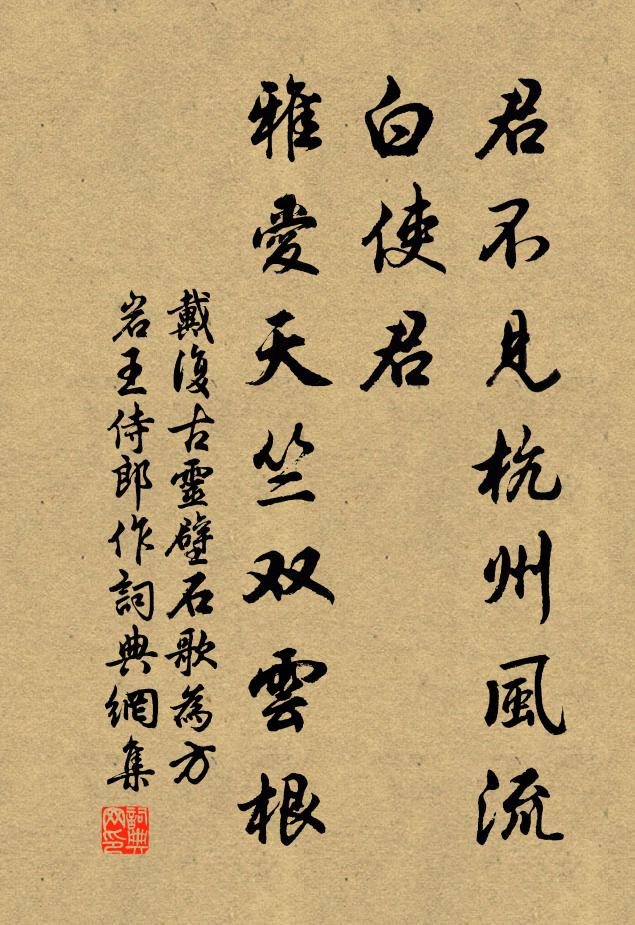 君不見杭州風流
白使君
雅愛天竺双雲根
戴復古靈璧石歌為方
岩王侍郎作詞典網集
詞典网印